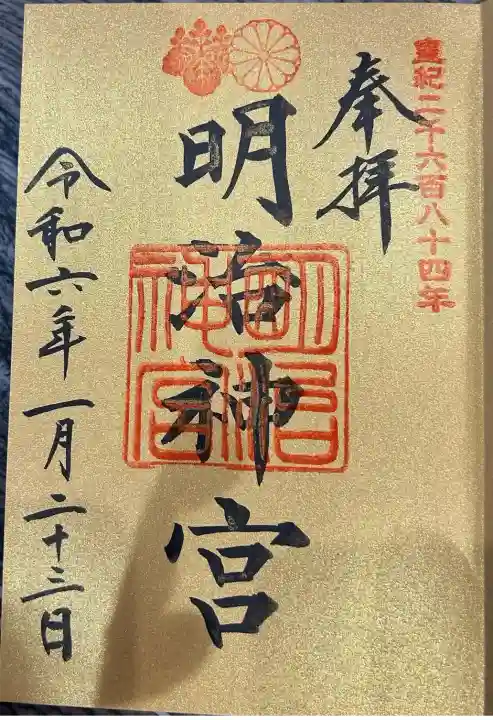 皇紀二千六百八十四年
奉拝
明治神宮
明治
神宮
令和六年一月二十三日